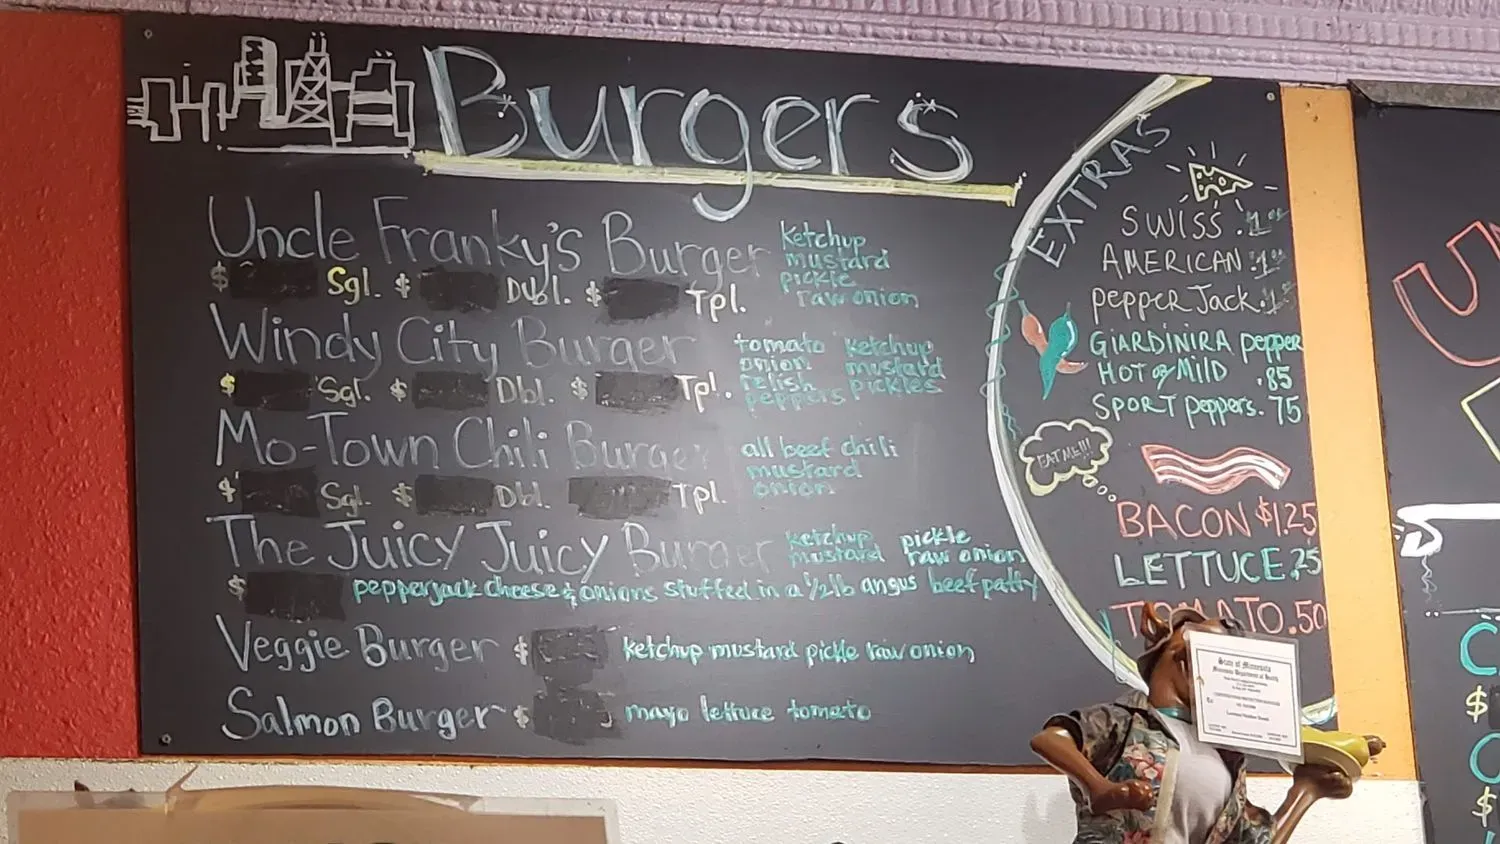 Burgers
Uncle Franky's Burger
ketchup
mustard
pickle
raw onion
$ Sgl. $ Dubl. $ Tpl.
Windy City Burger
tomato ketchup
onion mustard
relish pickles
peppers
$ Sgl. $ Dbl. $ Tpl.
Mo-Town Chili Burger
all beef chili
mustard
onion
$ Sgl. $ Dbl. Tpl.
The Juicy Juicy Burger
ketchup pickle
mustard raw onion
$ pepperjack cheese & onions stuffed in a 1/2 lb angus beef patty
Veggie Burger $ ketchup mustard pickle raw onion
Salmon Burger $ mayo lettuce tomato
EXTRAS
SWISS
AMERICAN
pepper Jack
GIARDINIRA pepper
HOT or MILD .85
SPORT peppers .75
EAT ME!!!
BACON $1.25
LETTUCE .25
TOMATO .50
State of Minnesota
Minnesota Department of Health
C
$
$